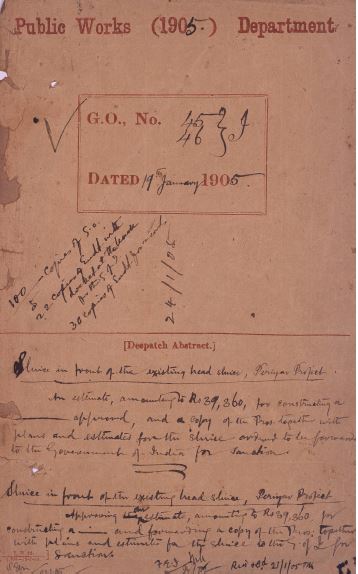 Public Works (1905.) Department.
G.O., No. 45 46 } I
DATED 19th January 1905.
100 copies of G.O.
30 copies of
24/1/05
[Despatch Abstract.]
Sluice in front of the existing head sluice, Periyar Project.
An estimate, amounting to Rs 39,360, for constructing a
approved, and a copy of the Pros. together with
plans and estimates for the sluice ordered to be forwarded
to the Government of India for sanction.
Sluice in front of the existing head sluice, Periyar Project
Approving an estimate, amounting to Rs 39,360 for
constructing a and forwarding a copy of the Pros. together
with plans and estimates for the sluice to the G of I for
sanction